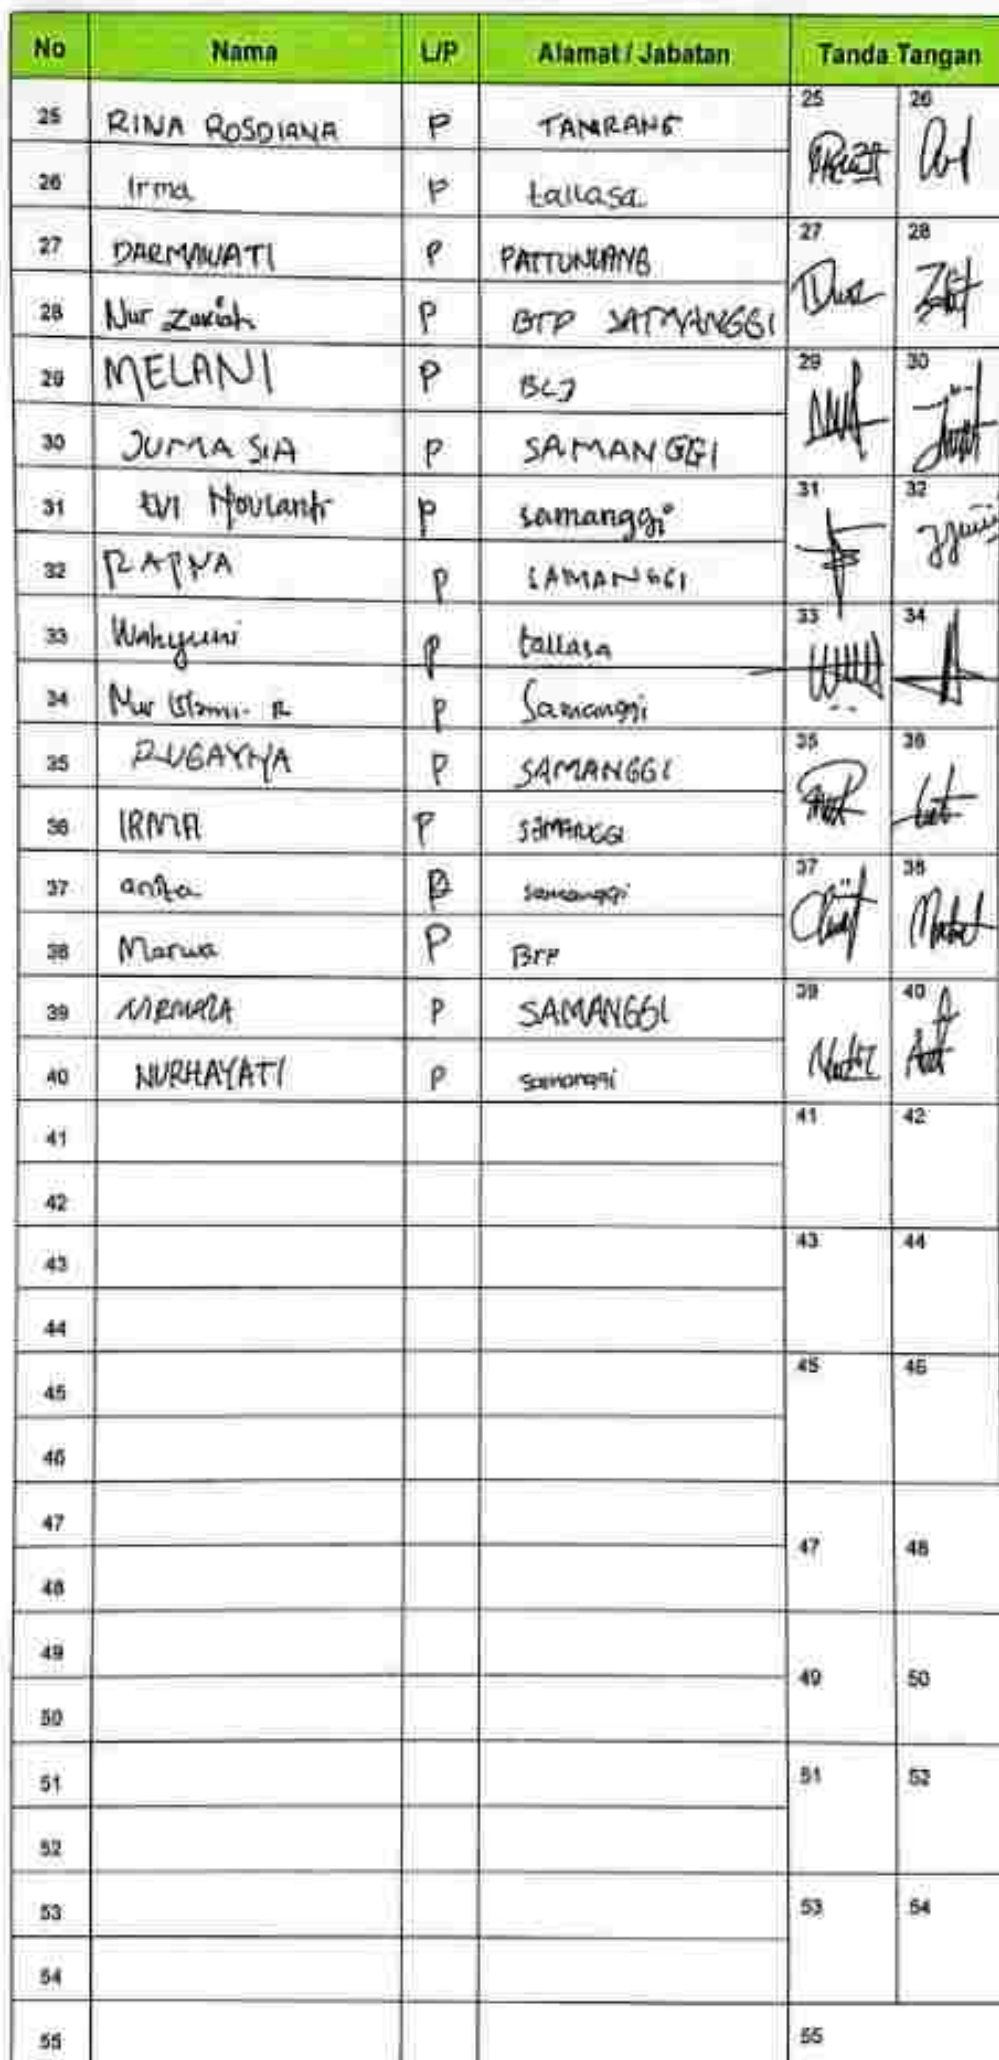 No Nama L/P Alamat / Jabatan Tanda Tangan
25 RINA ROSDIANA P TAMRANG 25 26
26 Irma P tallasa
27 DARMAWATI P PATTUNUANG 27 28
28 Nur Zakiah P BTP SAMANGGI
29 MELANI P 29 30
30 JUMA SIA P SAMANGGI
31 EVI P samanggi 31 32
32 P SAMANGGI
33 Wahyuni P tallasa 33 34
34 Nur Islami. R P Samanggi
35 RUGAYYA P SAMANGGI 35 36
36 IRMA P SAMANGGI
37 anita P samanggi 37 38
38 Marwa P BTP
39 NIRMALA P SAMANGGI 39 40
40 NURHAYATI P samanggi
41 41 42
42
43 43 44
44
45 45 46
46
47 47 48
48
49 49 50
50
51 51 52
52
53 53 54
54
55 55